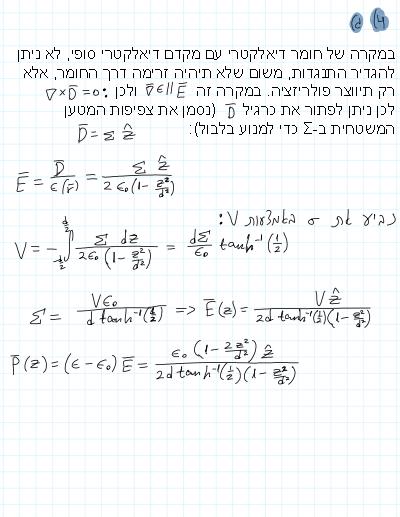 4) ב
במקרה של חומר דיאלקטרי עם מקדם דיאלקטרי סופי, לא ניתן
להגדיר התנגדות, משום שלא תיהיה זרימה דרך החומר, אלא
רק תיווצר פולריזציה. במקרה זה ∇ϵ∥E̅ ולכן ∇×D̅=0:
לכן ניתן לפתור את כרגיל D̅ (נסמן את צפיפות המטען
המשטחית ב-Σ כדי למנוע בלבול):
D̅ = Σ ẑ
E̅ = D̅/ϵ(r̅) = Σ ẑ / 2ϵ₀(1 - z²/d²)
נביע את σ באמצעות V:
V = -∫_{-d/2}^{d/2} Σ dz / 2ϵ₀(1 - z²/d²) = dΣ/ϵ₀ tanh⁻¹(1/2)
Σ = Vϵ₀ / d tanh⁻¹(1/2) => E̅(z) = V ẑ / 2d tanh⁻¹(1/2)(1 - z²/d²)
P̅(z) = (ϵ - ϵ₀) E̅ = ϵ₀(1 - 2z²/d²) ẑ / 2d tanh⁻¹(1/2)(1 - z²/d²)